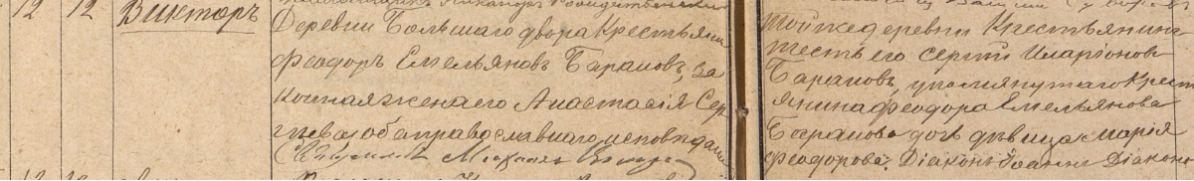 12 12 Викторъ
Деревни Большаго двора Крестьянинъ
Феодоръ Емельяновъ Барановъ, за
конная жена его Анастасія Сер
гѣева оба православнаго исповѣданія
Михаилъ
той же деревни Крестьянинъ
тесть его Сергій Иларіоновъ
Барановъ, упомянутаго Крест
янина Феодора Емельянова
Баранова дочь дѣвица Марія
Феодорова. Діаконъ Іоаннъ Діаконо